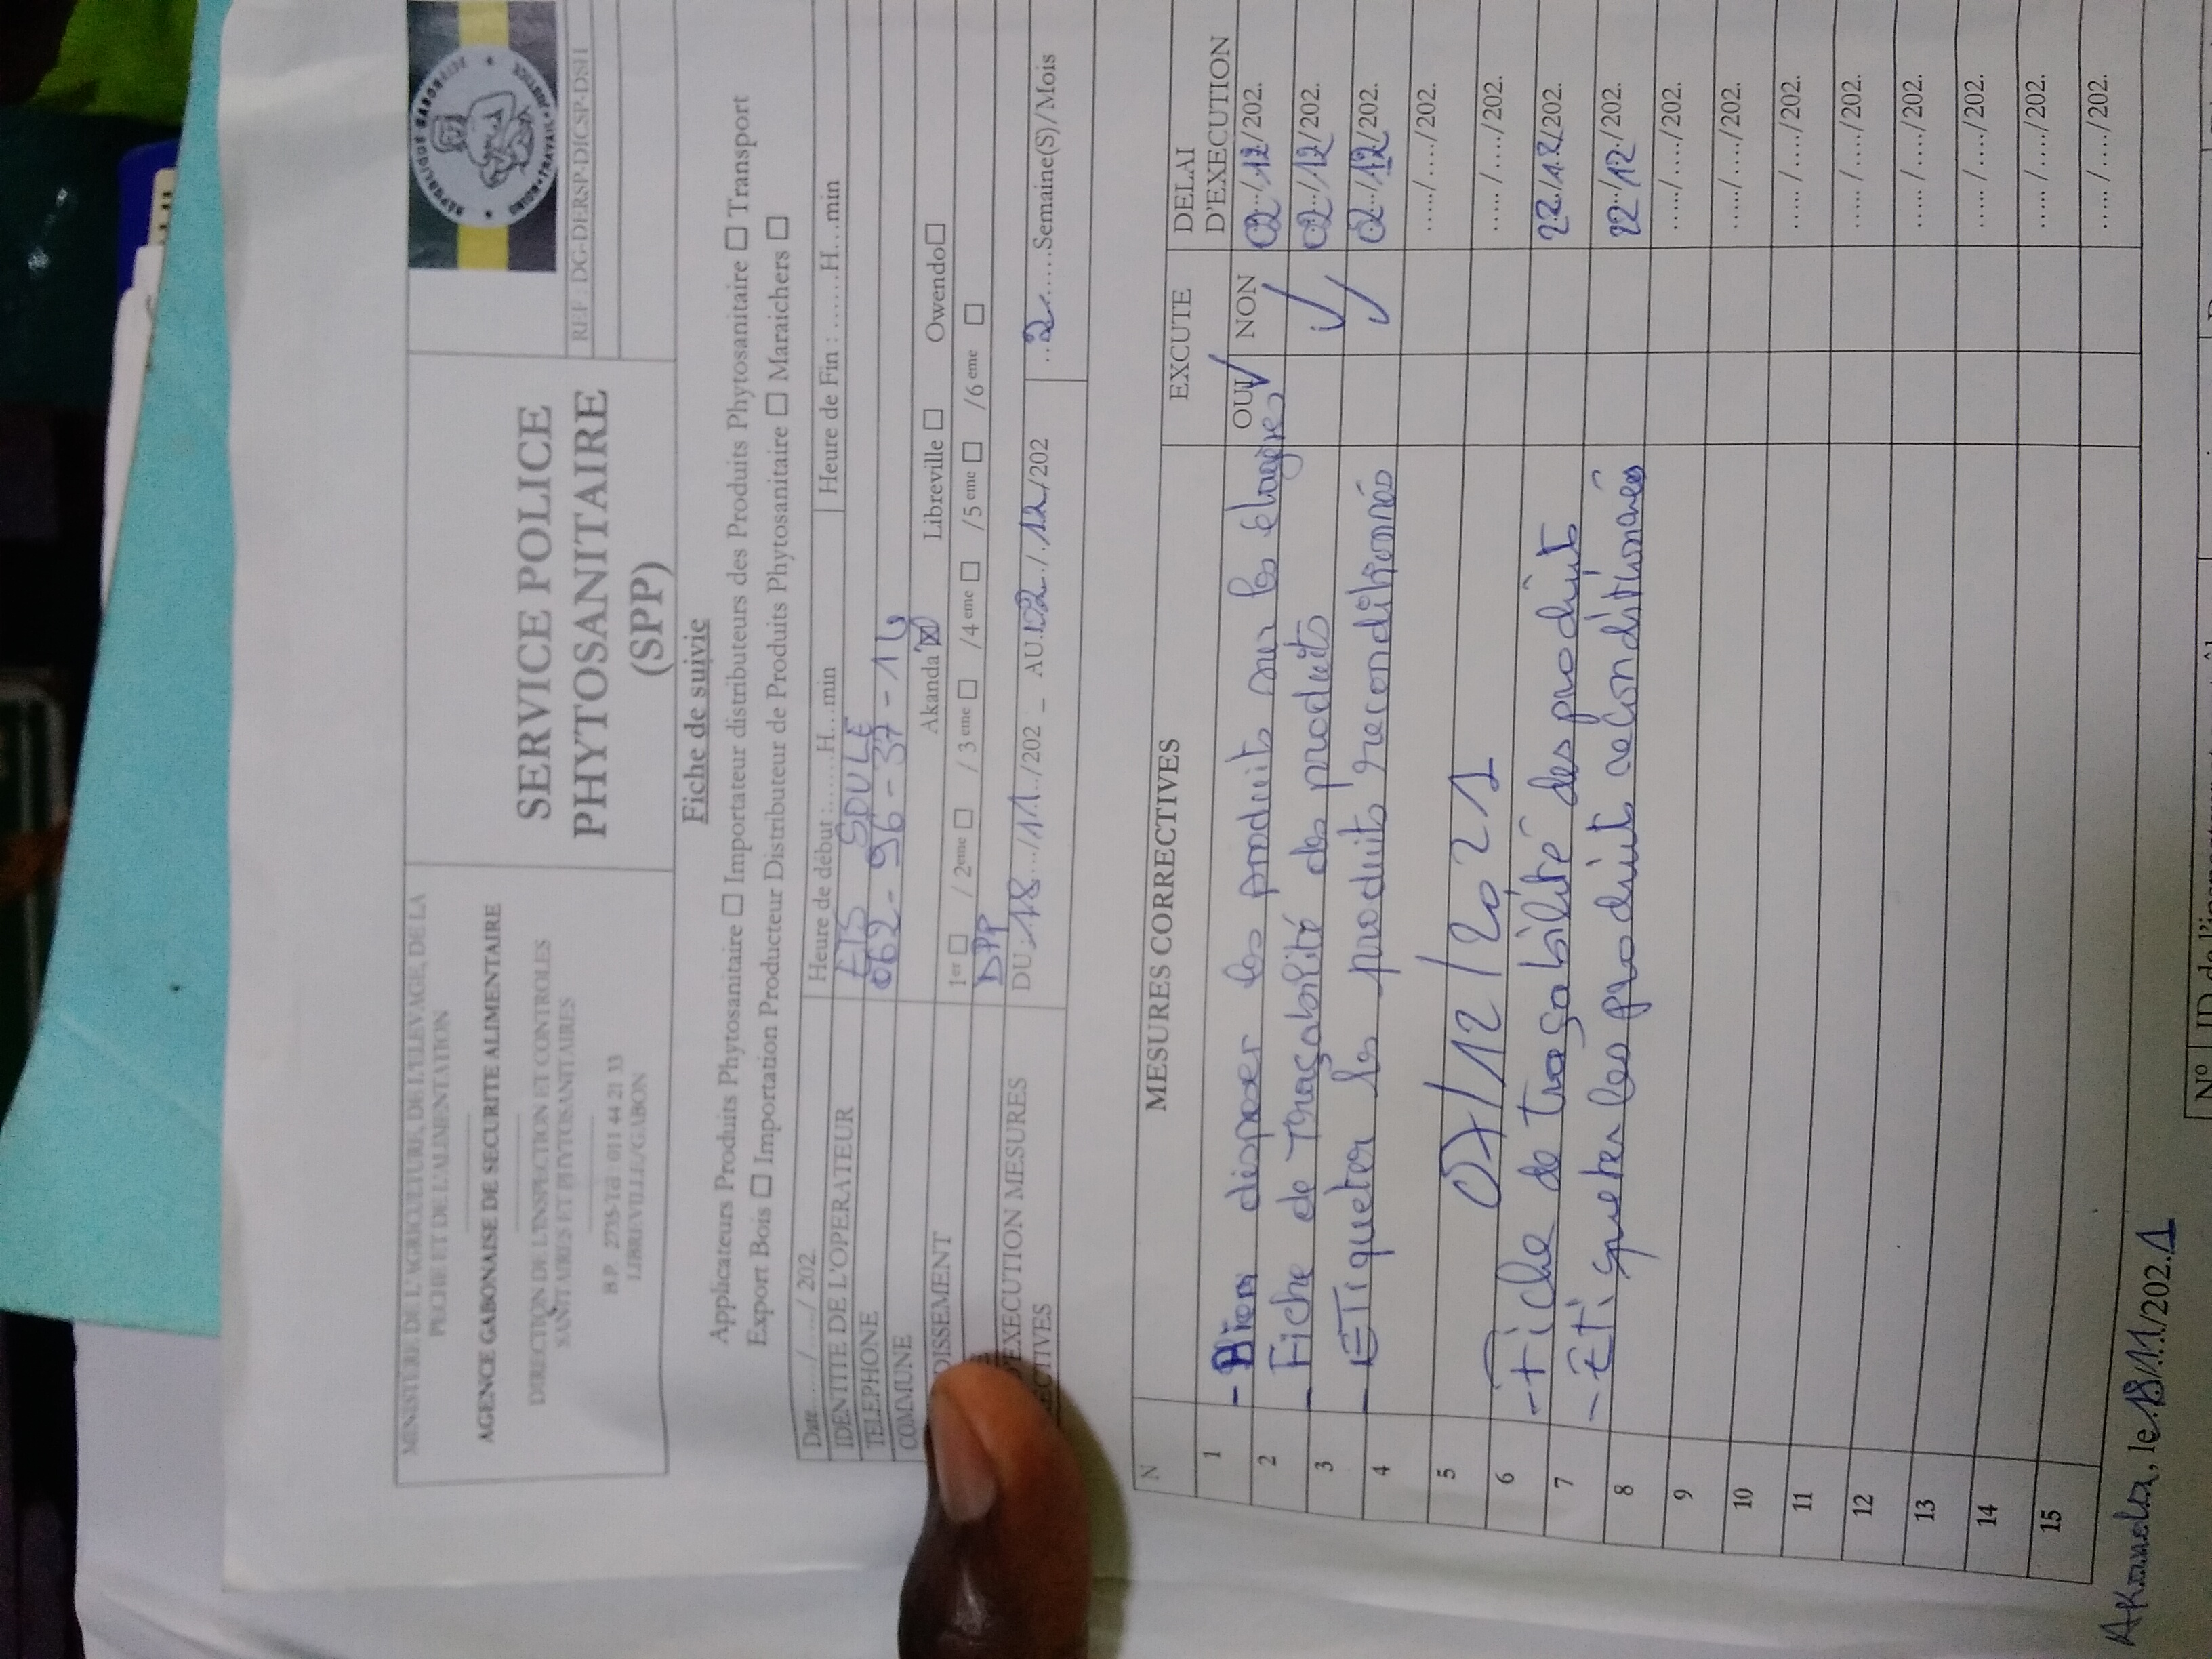 MINISTERE DE L'AGRICULTURE, DE L'ELEVAGE, DE LA
PECHE ET DE L'ALIMENTATION
AGENCE GABONAISE DE SECURITE ALIMENTAIRE
DIRECTION DE L'INSPECTION ET CONTROLES
SANITAIRES ET PHYTOSANITAIRES
B.P. 2735-Tél : 011 44 21 33
LIBREVILLE/GABON
SERVICE POLICE
PHYTOSANITAIRE
(SPP)
REF : DG-DERSP-DICSP-DSH
Fiche de suivie
Applicateurs Produits Phytosanitaire ☐ Importateur distributeurs des Produits Phytosanitaire ☐ Transport
Export Bois ☐ Importation Producteur Distributeur de Produits Phytosanitaire ☐ Maraichers ☐
Date....../....../ 202 Heure de début :......H...min Heure de Fin : ......H...min
IDENTITE DE L'OPERATEUR ETS SOULE
TELEPHONE 062-96-37-16
COMMUNE Akanda ☒ Libreville ☐ Owendo ☐
DISSEMENT 1er ☐ / 2eme ☐ / 3eme ☐ /4eme ☐ /5eme ☐ /6eme ☐
DPP
D'EXECUTION MESURES DU:18.../11../202 _ AU.02./.12/202 ..2.....Semaine(S)/Mois
ECTIVES
N MESURES CORRECTIVES EXCUTE DELAI D'EXECUTION
OUI NON
1 - Bien disposer les produits sur les étagères 02../12/202.
2 - Fiche de traçabilité des produits 02../12/202.
3 - ETiqueter les produits reconditionnés 02../12/202.
4 ...../..../202.
5 07/12/2021 ...../..../202.
6 - Fiche de traçabilité des produit 22/12/202.
7 - Etiqueter les produit reconditionnés 22../12./202.
8 ...../..../202.
9 ...../..../202.
10 ...../..../202.
11 ...../..../202.
12 ...../..../202.
13 ...../..../202.
14 ...../..../202.
15
Akanda, le 18/11/2021
N° ID de l'